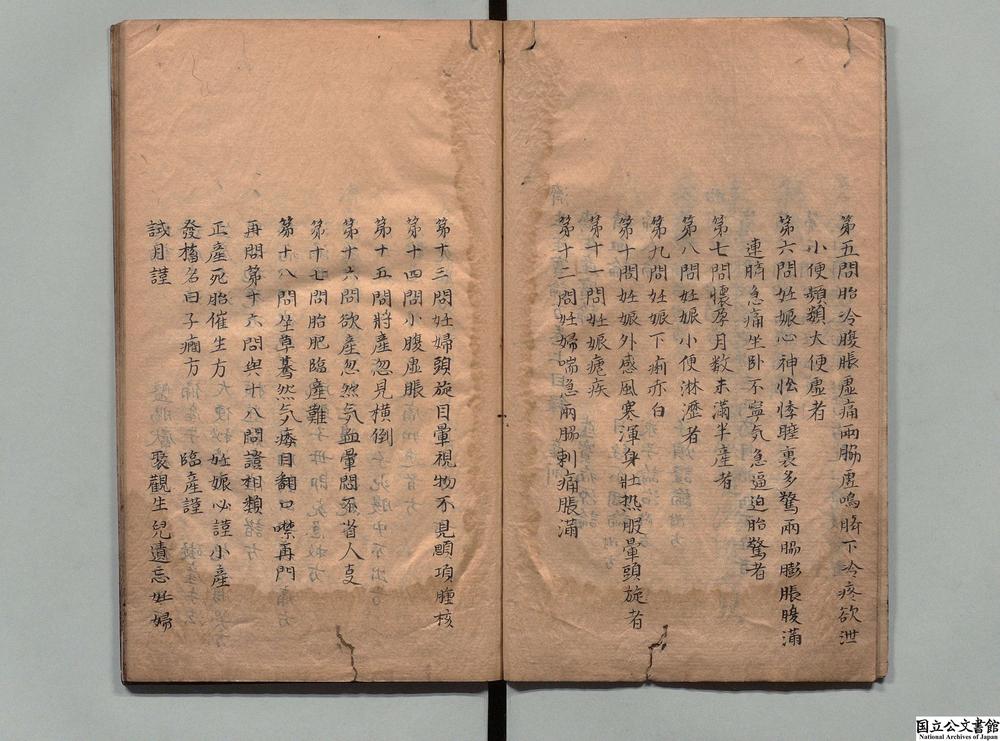 第五問胎冷腹脹虛痛兩脇虛鳴臍下冷疼欲泄
小便頻頻大便虛者
第六問妊娠心神忪悸睡裏多驚兩脇膨脹腹滿
連臍急痛坐卧不寧气急逼迫胎驚者
第七問懷孕月数未滿半產者
第八問妊娠小便淋瀝者
第九問妊娠下痢赤白
第十問妊娠外感風寒渾身壯熱眼暈頭旋者
第十一問妊娠瘧疾
第十二問妊婦喘急兩脇刺痛脹滿
第十三問妊婦頭旋目暈視物不見頤項腫核
第十四問小腹虛脹
第十五問將產忽見横倒
第十六問欲產忽然气血暈悶不省人事
第十七問胎肥臨產難
第十八問坐草驀然气痿目翻口噤再門
再問第十六問與十八問證相類
正產死胎催生方 妊娠必謹小產
發搐名曰子癇方 臨產謹
誡月謹 聚觀生兒遺忘妊婦
国立公文書館
National Archives of Japan